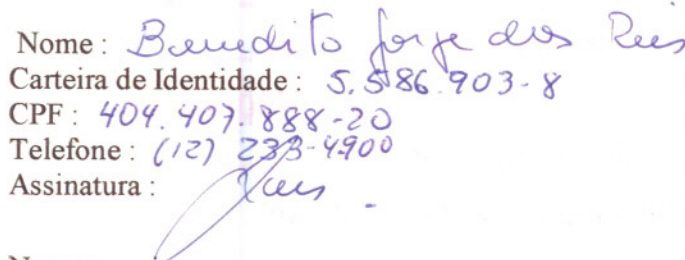 Nome : Benedito Jorge dos Reis
Carteira de Identidade : 5.586.903-8
CPF : 404.407.888-20
Telefone : (12) 233-4900
Assinatura : Reis